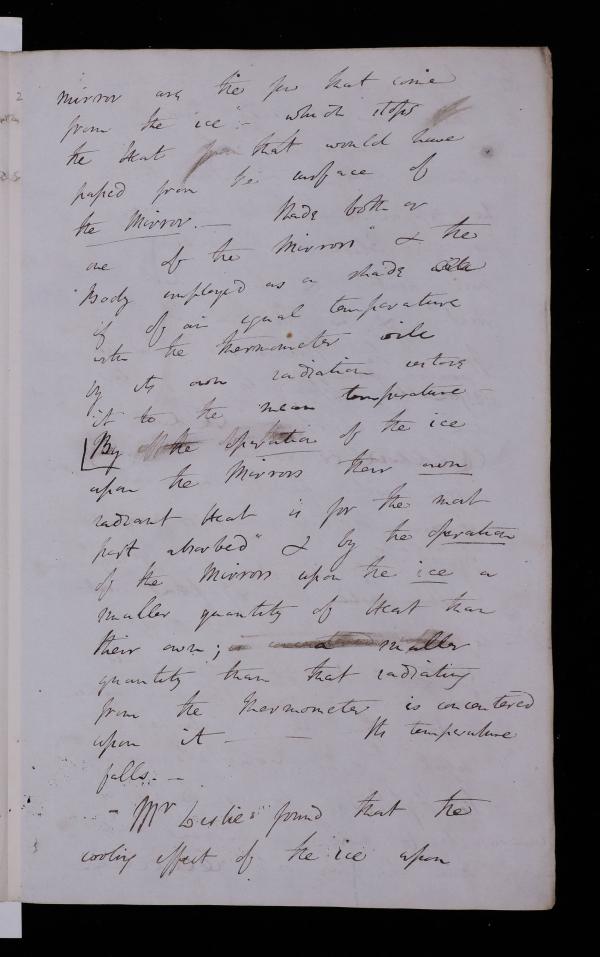 mirror are the few that come
from the ice - which stops
the Heat from that would have
passed from the surface of
the Mirror. - Shade both or
one of the Mirrors & the
Body employed as a shade
if of an equal temperature
with the thermometer will
by its own radiation restore
it to the mean temperature -
By the operation of the ice
upon the Mirrors their own
radiant Heat is for the most
part absorbed & by the operation
of the Mirrors upon the ice a
smaller quantity of Heat than
their own; a smaller
quantity than that radiating
from the thermometer is concentered
upon it - - Its temperature
falls. -
- Mr Leslie found that the
cooling effect of the ice upon